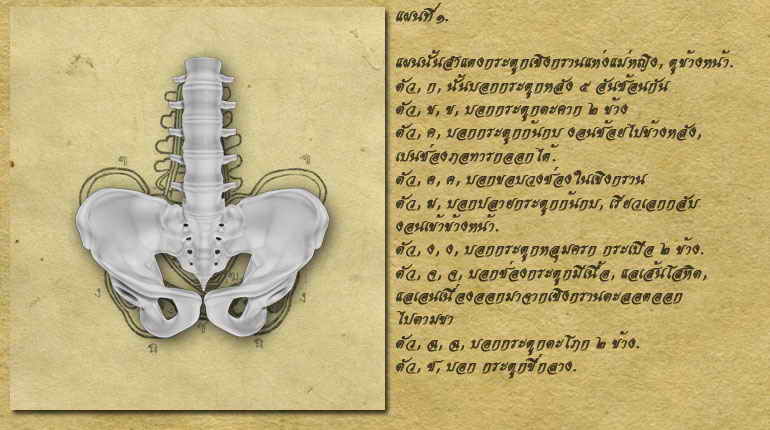 แผนที่ ๑.
แผนนี้นสำแดงกระดูกเชิงกรานแห่งแม่หญิง, ดูข้างหน้า.
ตัว, ก, นั้นบอกกระดูกหลัง ๕ อันซ้อนกัน
ตัว, ข, ข, บอกกระดูกตะคาก ๒ ข้าง
ตัว, ค, บอกกระดูกก้นกบ งอนช้อยไปข้างหลัง,
เปนช่องภอทารกออกได้.
ตัว, ค, ค, บอกขอบวงช่องในเชิงกราน
ตัว, ฆ, บอกปลายกระดูกก้นกบ, เรียวเลกกลับ
งอนเข้าข้างหน้า.
ตัว, ง, ง, บอกกระดูกหลุมครก กระเปือ ๒ ข้าง.
ตัว, จ, จ, บอกช่องกระดูกมีเนื้อ, แลเส้นโลหิต,
แลเอนเนื่องออกมาจากเชิงกรานตะลอดออก
ไปตามขา
ตัว, ฉ, ฉ, บอกกระดูกตะโภก ๒ ข้าง.
ตัว, ช, บอก กระดูกขี่กลาง.